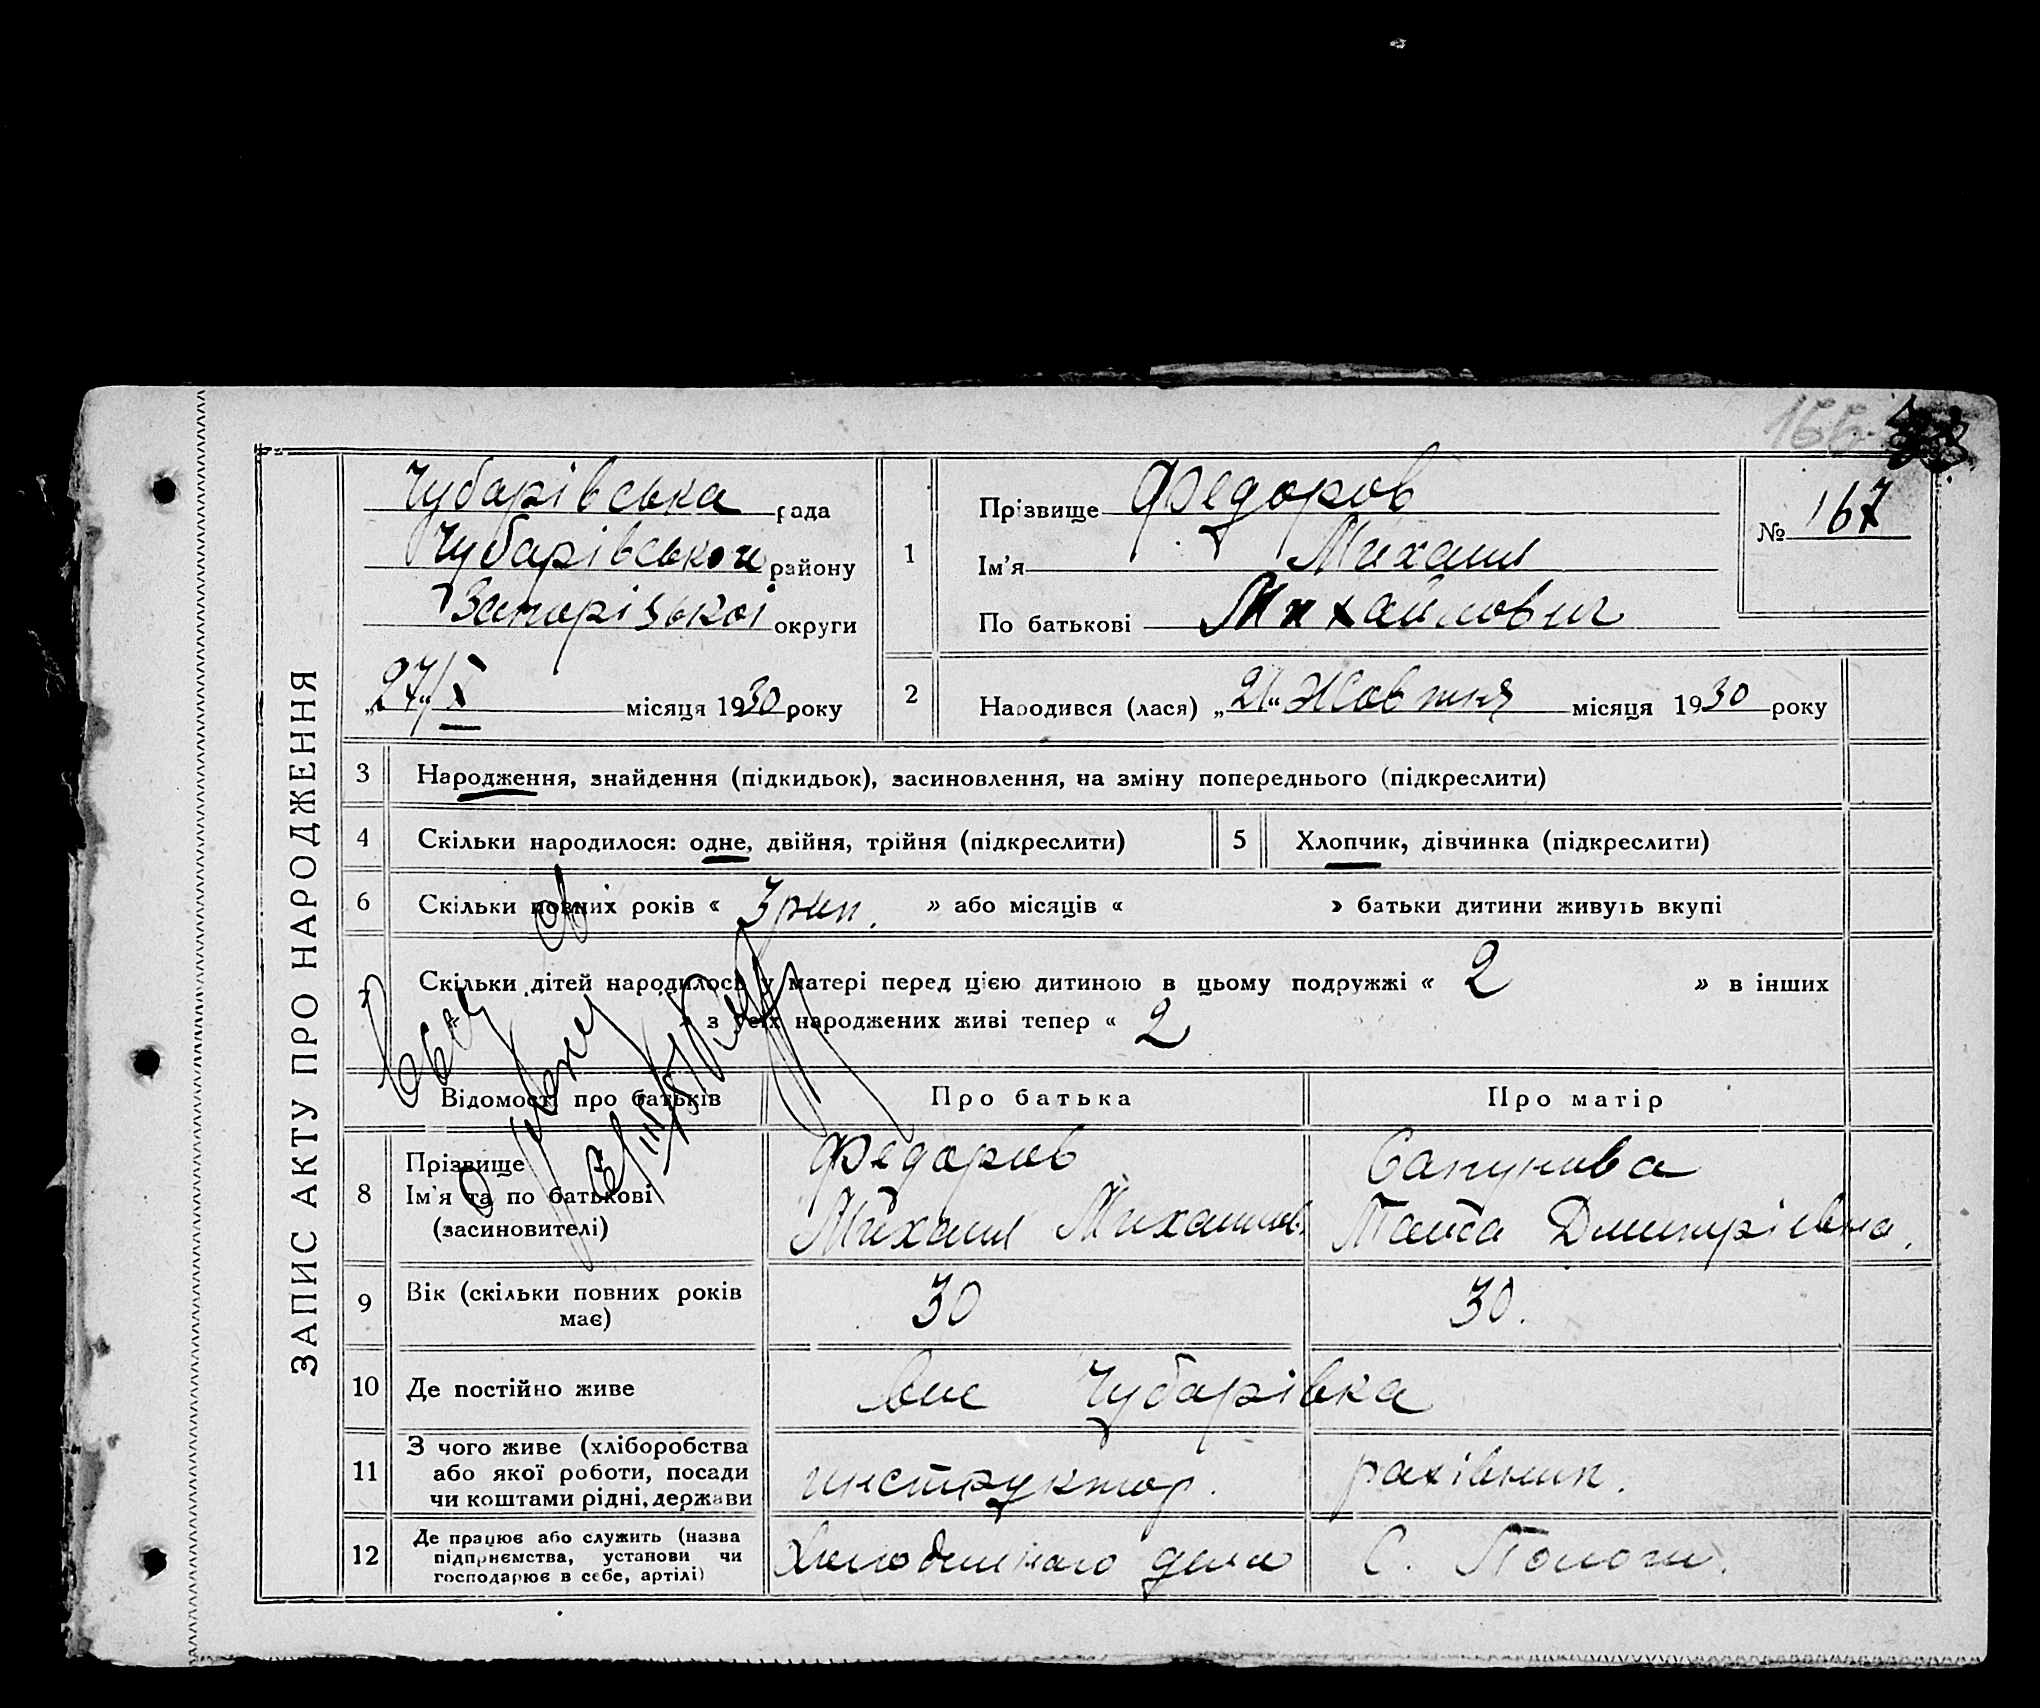 166
ЗАПИС АКТУ ПРО НАРОДЖЕННЯ
Чубарівська рада
Чубарівського району
Запорізької округи
„27“/X місяця 1930 року
1
Прізвище Федоров
Ім'я Михаил
По батькові Михайлович
№ 167
2
Народився (лася) „21“ Жовтня місяця 1930 року
3 Народження, знайдення (підкидьок), засиновлення, на зміну попереднього (підкреслити)
4 Скільки народилося: одне, двійня, трійня (підкреслити)
5 Хлопчик, дівчинка (підкреслити)
6 Скільки повних років « 3 рик. » або місяців « » батьки дитини живуть вкупі
7 Скільки дітей народилось у матері перед цією дитиною в цьому подружжі « 2 » в інших
« » з усіх народжених живі тепер « 2
Відомості про батьків Про батька Про матір
8
Прізвище
Ім'я та по батькові
(засиновителі)
Федоров
Михаил Михайлов.
Сапунова
Таиса Дмитрієвна.
9 Вік (скільки повних років
має)
30 30.
10 Де постійно живе Чубарівка
11 З чого живе (хліборобства
або якої роботи, посади
чи коштами рідні, держави
инструктор. рахівник.
12 Де працює або служить (назва
підприємства, установи чи
господарює в себе, артілі)
дела С. Пологи.